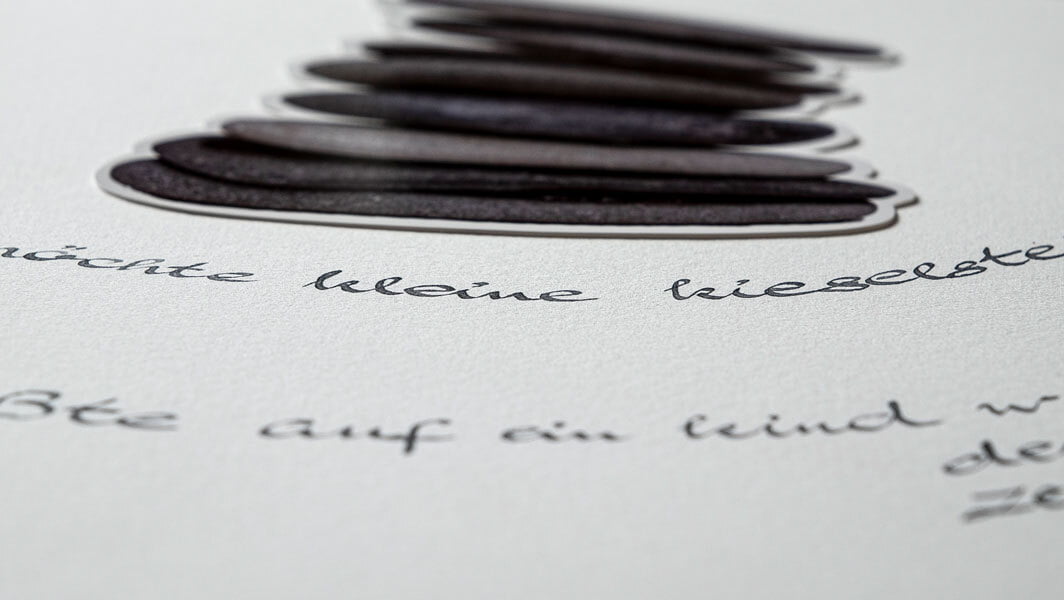 möchte kleine kieselste
ßte auf ein kind w
de
ze